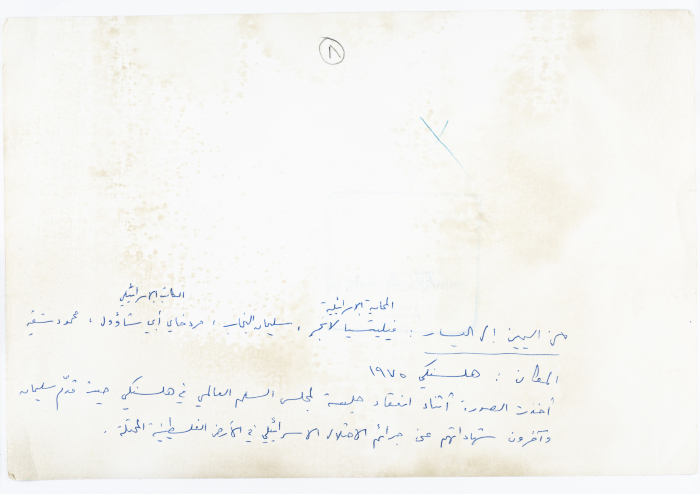 ٨
المحامية الإسرائيلية
الكاتب الإسرائيلي
من اليمين إلى اليسار : فيليتسيا لانجر ، سليمان النجاب ، مردخاي أبي شاؤول ، محمود شقير
المكان : هلسنكي ١٩٧٥
أخذت الصورة أثناء انعقاد جلسة لمجلس السلم العالمي في هلسنكي حيث قدّم سليمان
وآخرون شهاداتهم عن جرائم الاحتلال الاسرائيلي في الأرض الفلسطينية المحتلة .